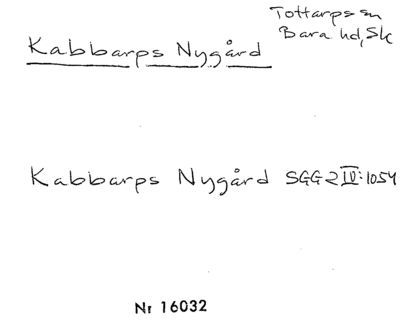 Tottarps sn
Bara hd, Sk
Kabbarps Nygård
Kabbarps Nygård SGG 2 IV:1054
Nr 16032